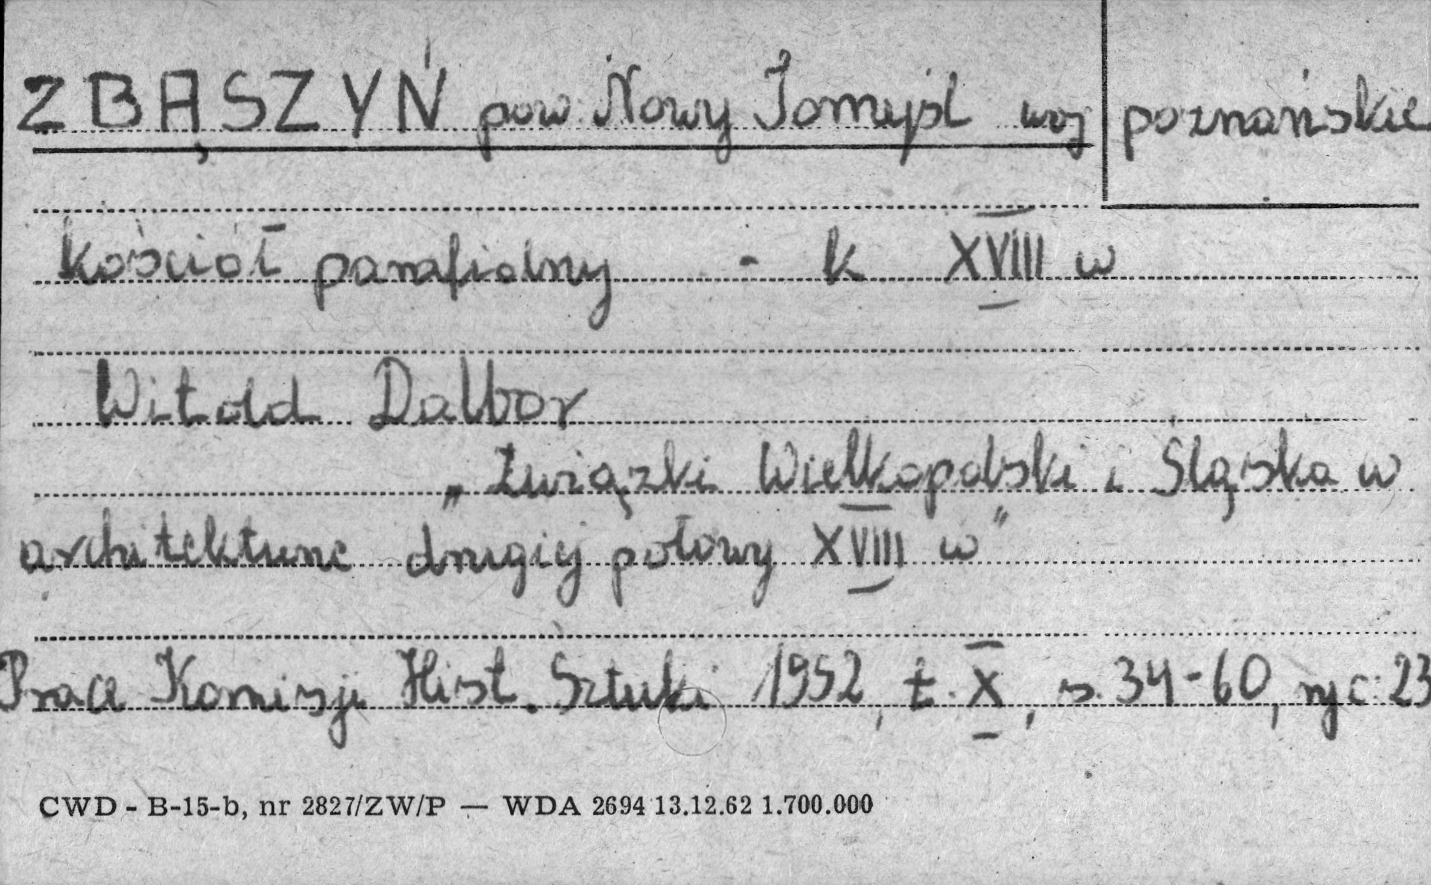 ZBĄSZYŃ pow. Nowy Tomyśl woj poznańskie
kościół parafialny - k XVIII w
Witold Dalbor
„Związki Wielkopolski i Śląska w
architekturze drugiej połowy XVIII w"
Prace Komisji Hist. Sztuki 1952, t. X, s. 34-60, ryc. 23
CWD - B-15-b, nr 2827/ZW/P — WDA 2694 13.12.62 1.700.000